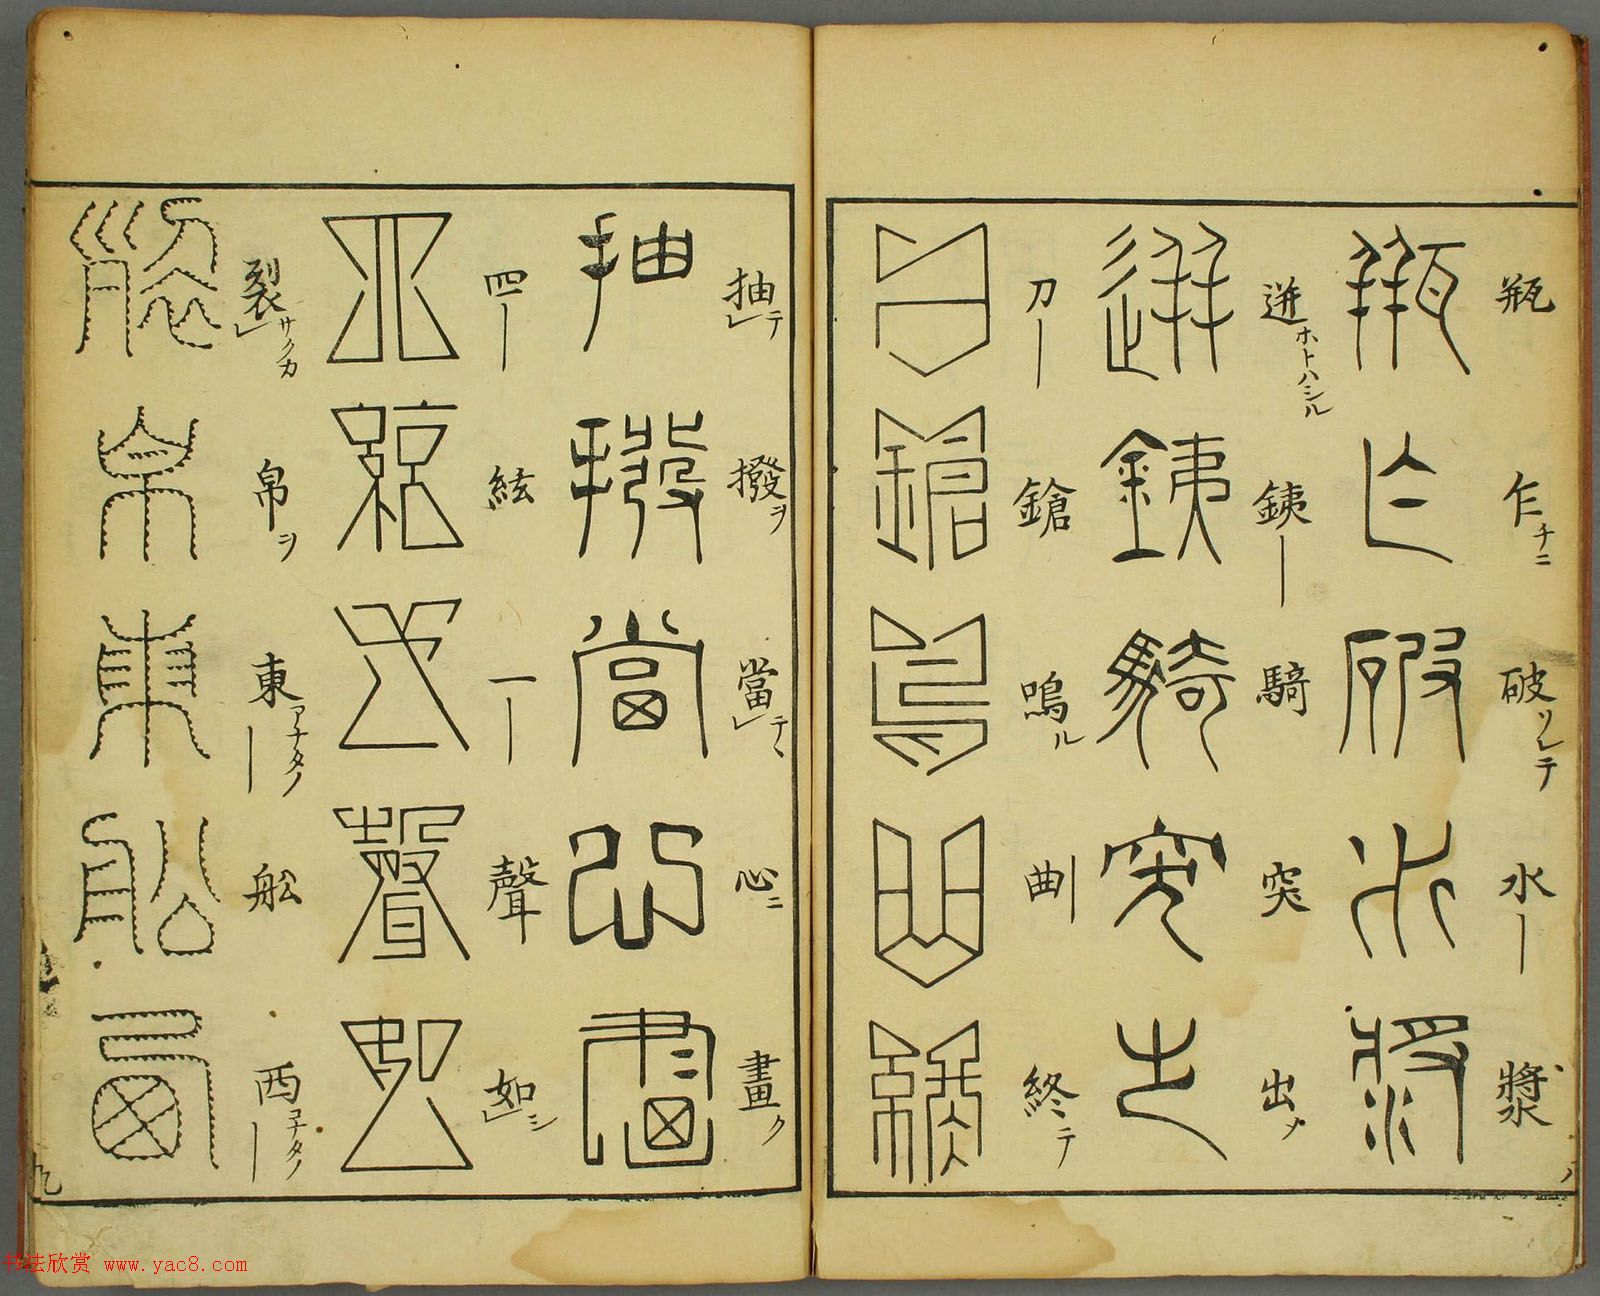 瓶 乍チニ 破ツレテ 水｜ 漿
迸ホトハシル 銕｜ 騎 突 出メ
刀｜ 鎗 鳴ル 曲 終テ
抽テ 撥ヲ 當テヽ 心ニ 畫ク
四｜ 絃 一｜ 聲 如シ
裂サクカ 帛ヲ 東アナタノ｜ 舩 西コナタノ｜
书法欣赏 www.yac8.com